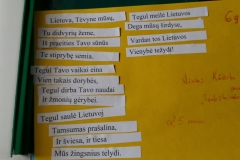 Lietuva, Tėvyne mūsų,
Tu didvyrių žeme,
Iš praeities Tavo sūnūs
Te stiprybę semia.
Tegul Tavo vaikai eina
Vien takais dorybės,
Tegul dirba Tavo naudai
Ir žmonių gėrybei.
Tegul saulė Lietuvoj
Tamsumas prašalina,
Ir šviesa, ir tiesa
Mūs žingsnius telydi.
Tegul meilė Lietuvos
Dega mūsų širdyse,
Vardan tos Lietuvos
Vienybė težydi!